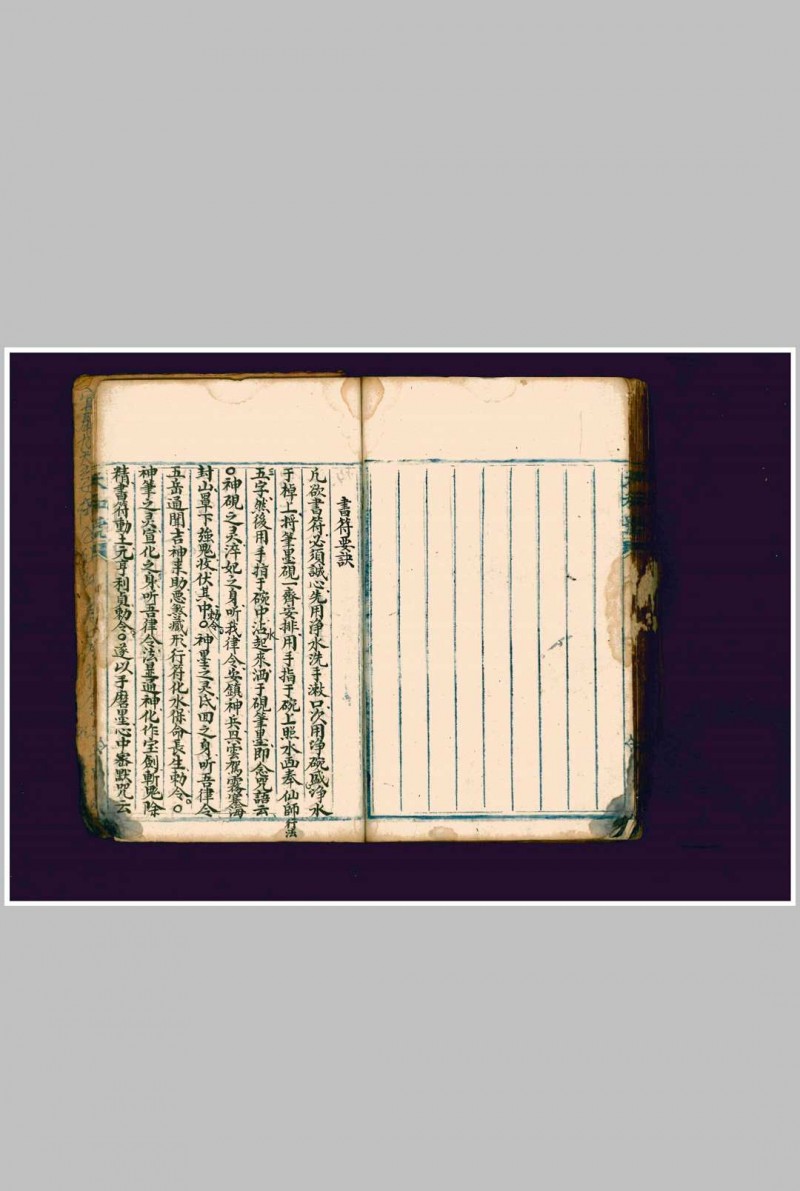 書符要訣
凡欲書符必須誠心先用净水洗手漱口次用净碗盛净水
于棹上将筆墨硯一齊安排用手指于碗上照水面奉仙師行法
三五字然後用手指于碗中沾水起來洒于硯筆墨即念咒語云
○神硯之灵淬妃之身听我律令安鎮神兵興雲駕霧塞海
封山罩下強鬼收伏其中勅令○神墨之灵氏回之身听吾律令
五岳通聞吉神来助恶煞藏形行符化水保命長生勅令○
神筆之灵宣化之身听吾律令法显通神化作宝劍斬鬼除
精書符動土元亨利貞勅令○遂以手磨墨心中密默咒云